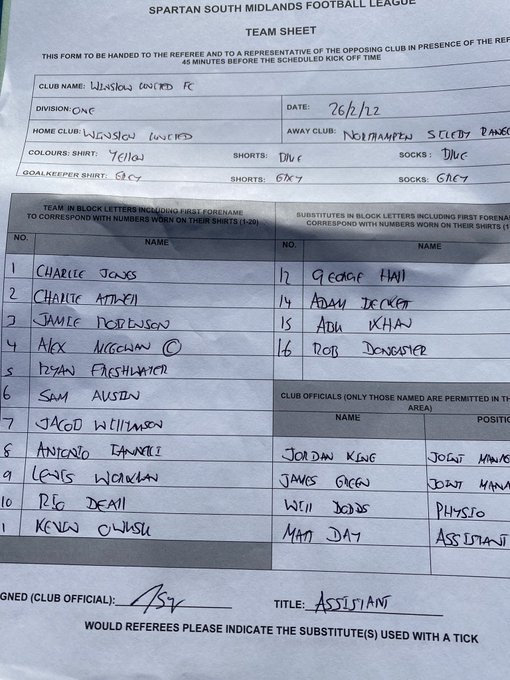 SPARTAN SOUTH MIDLANDS FOOTBALL LEAGUE
TEAM SHEET
THIS FORM TO BE HANDED TO THE REFEREE AND TO A REPRESENTATIVE OF THE OPPOSING CLUB IN PRESENCE OF THE REF
45 MINUTES BEFORE THE SCHEDULED KICK OFF TIME
CLUB NAME: WINSLOW UNITED FC
DIVISION: ONE DATE: 26/2/22
HOME CLUB: WINSLOW UNITED AWAY CLUB: NORTHAMPTON SILEBY RANGE
COLOURS: SHIRT: YELLOW SHORTS: BLUE SOCKS: BLUE
GOALKEEPER SHIRT: GREY SHORTS: GREY SOCKS: GREY
TEAM IN BLOCK LETTERS INCLUDING FIRST FORENAME
TO CORRESPOND WITH NUMBERS WORN ON THEIR SHIRTS (1-20)
SUBSTITUTES IN BLOCK LETTERS INCLUDING FIRST FORENA
CORRESPOND WITH NUMBERS WORN ON THEIR SHIRTS (1
NO. NAME NO. NAME
1 CHARLIE JONES 12 GEORGE HALL
2 CHARLIE ATTWELL 14 ADAM BECKETT
3 JAMIE ROBINSON 15 ABU KHAN
4 ALEX MCGOWAN C 16 ROB DONCASTER
5 RYAN FRESHWATER
6 SAM AUSTIN
CLUB OFFICIALS (ONLY THOSE NAMED ARE PERMITTED IN T
AREA)
NAME POSITIO
7 JACOB WILLIAMSON
8 ANTONIO IANNELLI JORDAN KING JOINT MANAG
9 LEWIS WORKMAN JAMES GREEN JOINT MANA
10 RIO DEALL WILL DODDS PHYSIO
1 KEVIN OWUSU MATT DAY ASSISTANT
GNED (CLUB OFFICIAL): TITLE: ASSISTANT
WOULD REFEREES PLEASE INDICATE THE SUBSTITUTE(S) USED WITH A TICK